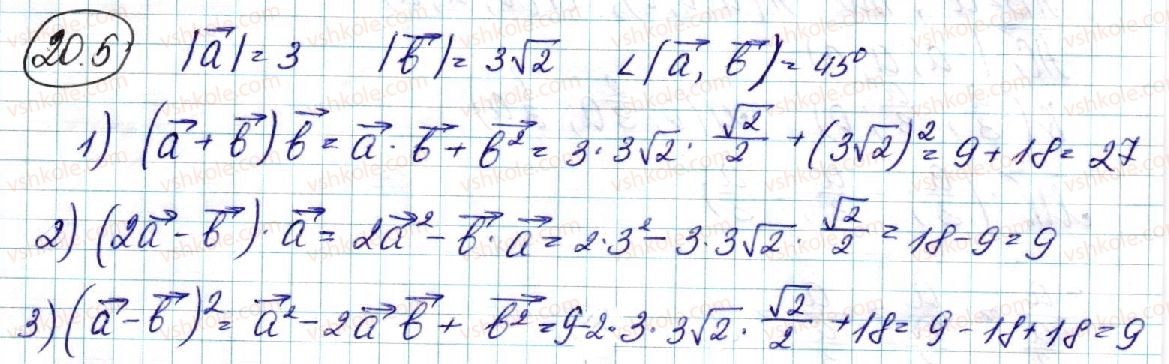 20.5 |a⃗| = 3 |b⃗| = 3√2 ∠(a⃗, b⃗) = 45°
1) (a⃗ + b⃗) b⃗ = a⃗ · b⃗ + b⃗² = 3 · 3√2 · √2/2 + (3√2)² = 9 + 18 = 27
2) (2a⃗ - b⃗) · a⃗ = 2a⃗² - b⃗ · a⃗ = 2 · 3² - 3 · 3√2 · √2/2 = 18 - 9 = 9
3) (a⃗ - b⃗)² = a⃗² - 2a⃗ b⃗ + b⃗² = 9 - 2 · 3 · 3√2 · √2/2 + 18 = 9 - 18 + 18 = 9
vshkole.com